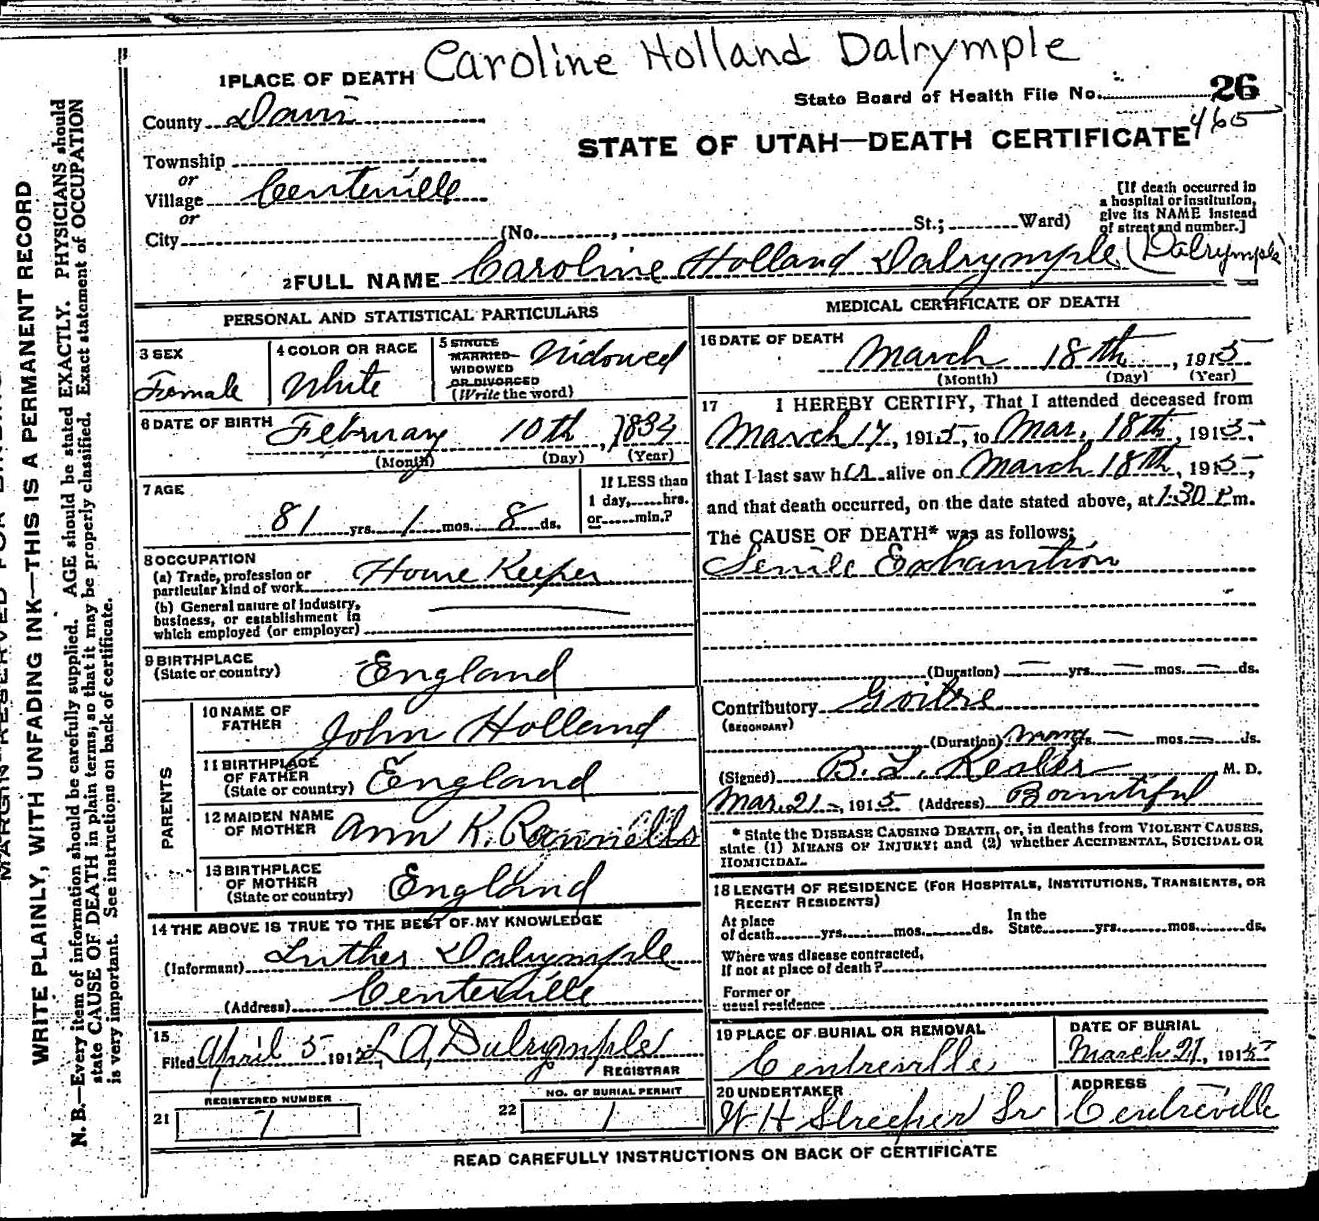 Caroline Holland Dalrymple
1 PLACE OF DEATH
State Board of Health File No. 26
465
County Davis
STATE OF UTAH—DEATH CERTIFICATE
Township
or
Village Centerville
or
City (No. , St.; Ward)
[If death occurred in
a hospital or institution,
give its NAME instead
of street and number.]
2 FULL NAME Caroline Holland Dalrymple (Dalrymple)
PERSONAL AND STATISTICAL PARTICULARS
3 SEX
Female
4 COLOR OR RACE
White
5 SINGLE
MARRIED
WIDOWED
OR DIVORCED
(Write the word)
Widowed
6 DATE OF BIRTH February 10th, 1834
(Month) (Day) (Year)
7 AGE
81 yrs. 1 mos. 8 ds.
If LESS than
1 day, hrs.
or min.?
8 OCCUPATION
(a) Trade, profession or
particular kind of work House Keeper
(b) General nature of industry,
business, or establishment in
which employed (or employer)
9 BIRTHPLACE
(State or country) England
PARENTS
10 NAME OF
FATHER John Holland
11 BIRTHPLACE
OF FATHER
(State or country) England
12 MAIDEN NAME
OF MOTHER Ann K.
13 BIRTHPLACE
OF MOTHER
(State or country) England
14 THE ABOVE IS TRUE TO THE BEST OF MY KNOWLEDGE
(Informant) Luther Dalrymple
(Address) Centerville
15
Filed April 5 191 L A Dalrymple
REGISTRAR
REGISTERED NUMBER
21 7
NO. OF BURIAL PERMIT
22 1
MEDICAL CERTIFICATE OF DEATH
16 DATE OF DEATH
March 18th, 1915
(Month) (Day) (Year)
17 I HEREBY CERTIFY, That I attended deceased from
March 17, 1915, to Mar. 18th, 1915,
that I last saw her alive on March 18th, 1915,
and that death occurred, on the date stated above, at 1:30 P m.
The CAUSE OF DEATH* was as follows:
Senile Exhaustion
(Duration) — yrs. — mos. — ds.
Contributory Goitre
(SECONDARY)
(Duration) many yrs. — mos. — ds.
(Signed) B. L. Kesler M. D.
Mar. 21 , 1915 (Address) Bountiful
* State the DISEASE CAUSING DEATH, or, in deaths from VIOLENT CAUSES,
state (1) MEANS OF INJURY; and (2) whether ACCIDENTAL, SUICIDAL OR
HOMICIDAL.
18 LENGTH OF RESIDENCE (FOR HOSPITALS, INSTITUTIONS, TRANSIENTS, OR
RECENT RESIDENTS)
At place
of death yrs. mos. ds.
In the
State yrs. mos. ds.
Where was disease contracted,
if not at place of death?
Former or
usual residence
19 PLACE OF BURIAL OR REMOVAL
Centreville
DATE OF BURIAL
March 21, 1915
20 UNDERTAKER
W H Streeper Sr
ADDRESS
Centreville
READ CAREFULLY INSTRUCTIONS ON BACK OF CERTIFICATE
WRITE PLAINLY, WITH UNFADING INK—THIS IS A PERMANENT RECORD
N. B.—Every item of information should be carefully supplied. AGE should be stated EXACTLY. PHYSICIANS should
state CAUSE OF DEATH in plain terms, so that it may be properly classified. Exact statement of OCCUPATION
is very important. See instructions on back of certificate.